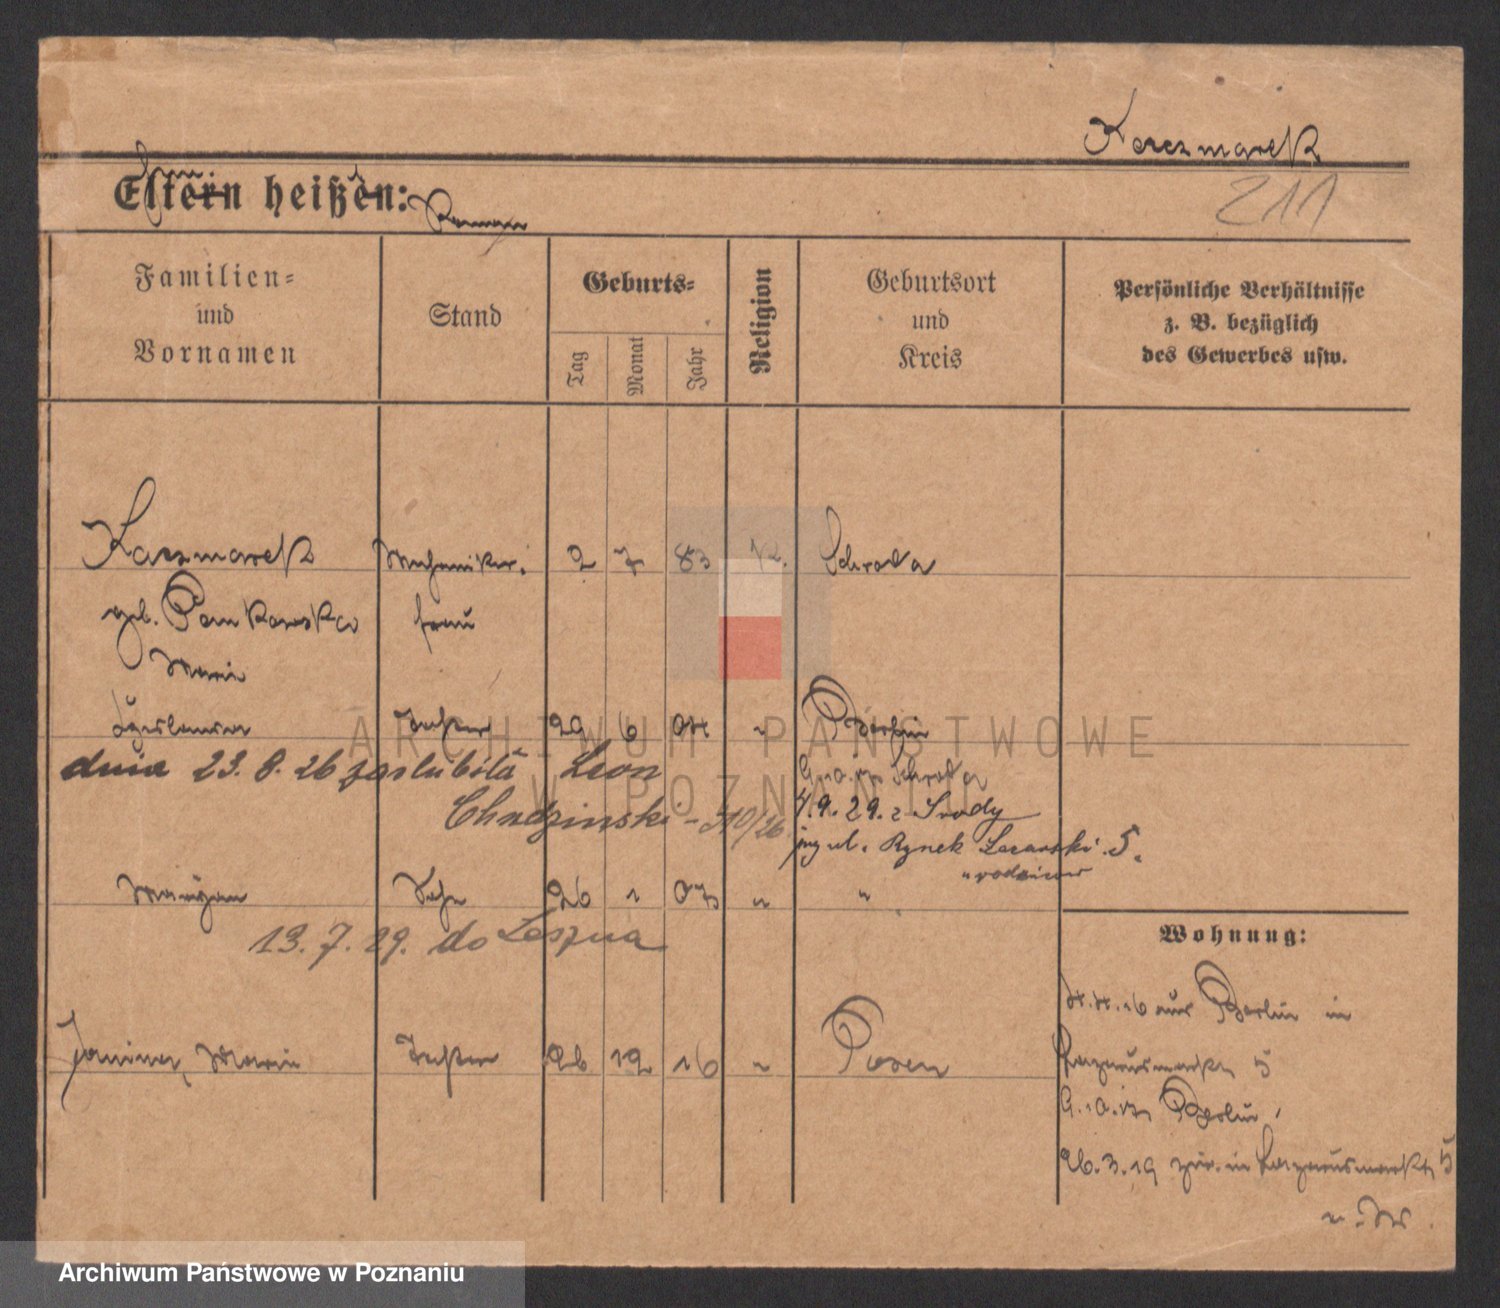 Kaczmarek
Eltern heißen:
211
Familien-
und
Vornamen
Stand
Geburts-
Tag
Monat
Jahr
Religion
Geburtsort
und
Kreis
Persönliche Verhältnisse
z. B. bezüglich
des Gewerbes usw.
Kaczmarek Mechaniker. 2 7 83 K. Schroda
geb. Pankowska frau
Maria
Tochter 29 6 04 " Berlin
dnia 23. 8. 26 zaślubiła Leon
Schroda
Chudzinski - 310/26
4.9.29. z Środy
ul. Rynek Łazarski 5.
Maryan Sohn 26 1 07 " "
13. 7. 29. do Leszna
Wohnung:
4.4.16 aus Berlin in
Lazarusmarkt 5
Janina, Maria Tochter 26 12 16 " Posen
9.10.17 Berlin
26.3.19 zur. in Lazarusmarkt 5
ARCHIWUM PAŃSTWOWE
W POZNANIU
Archiwum Państwowe w Poznaniu